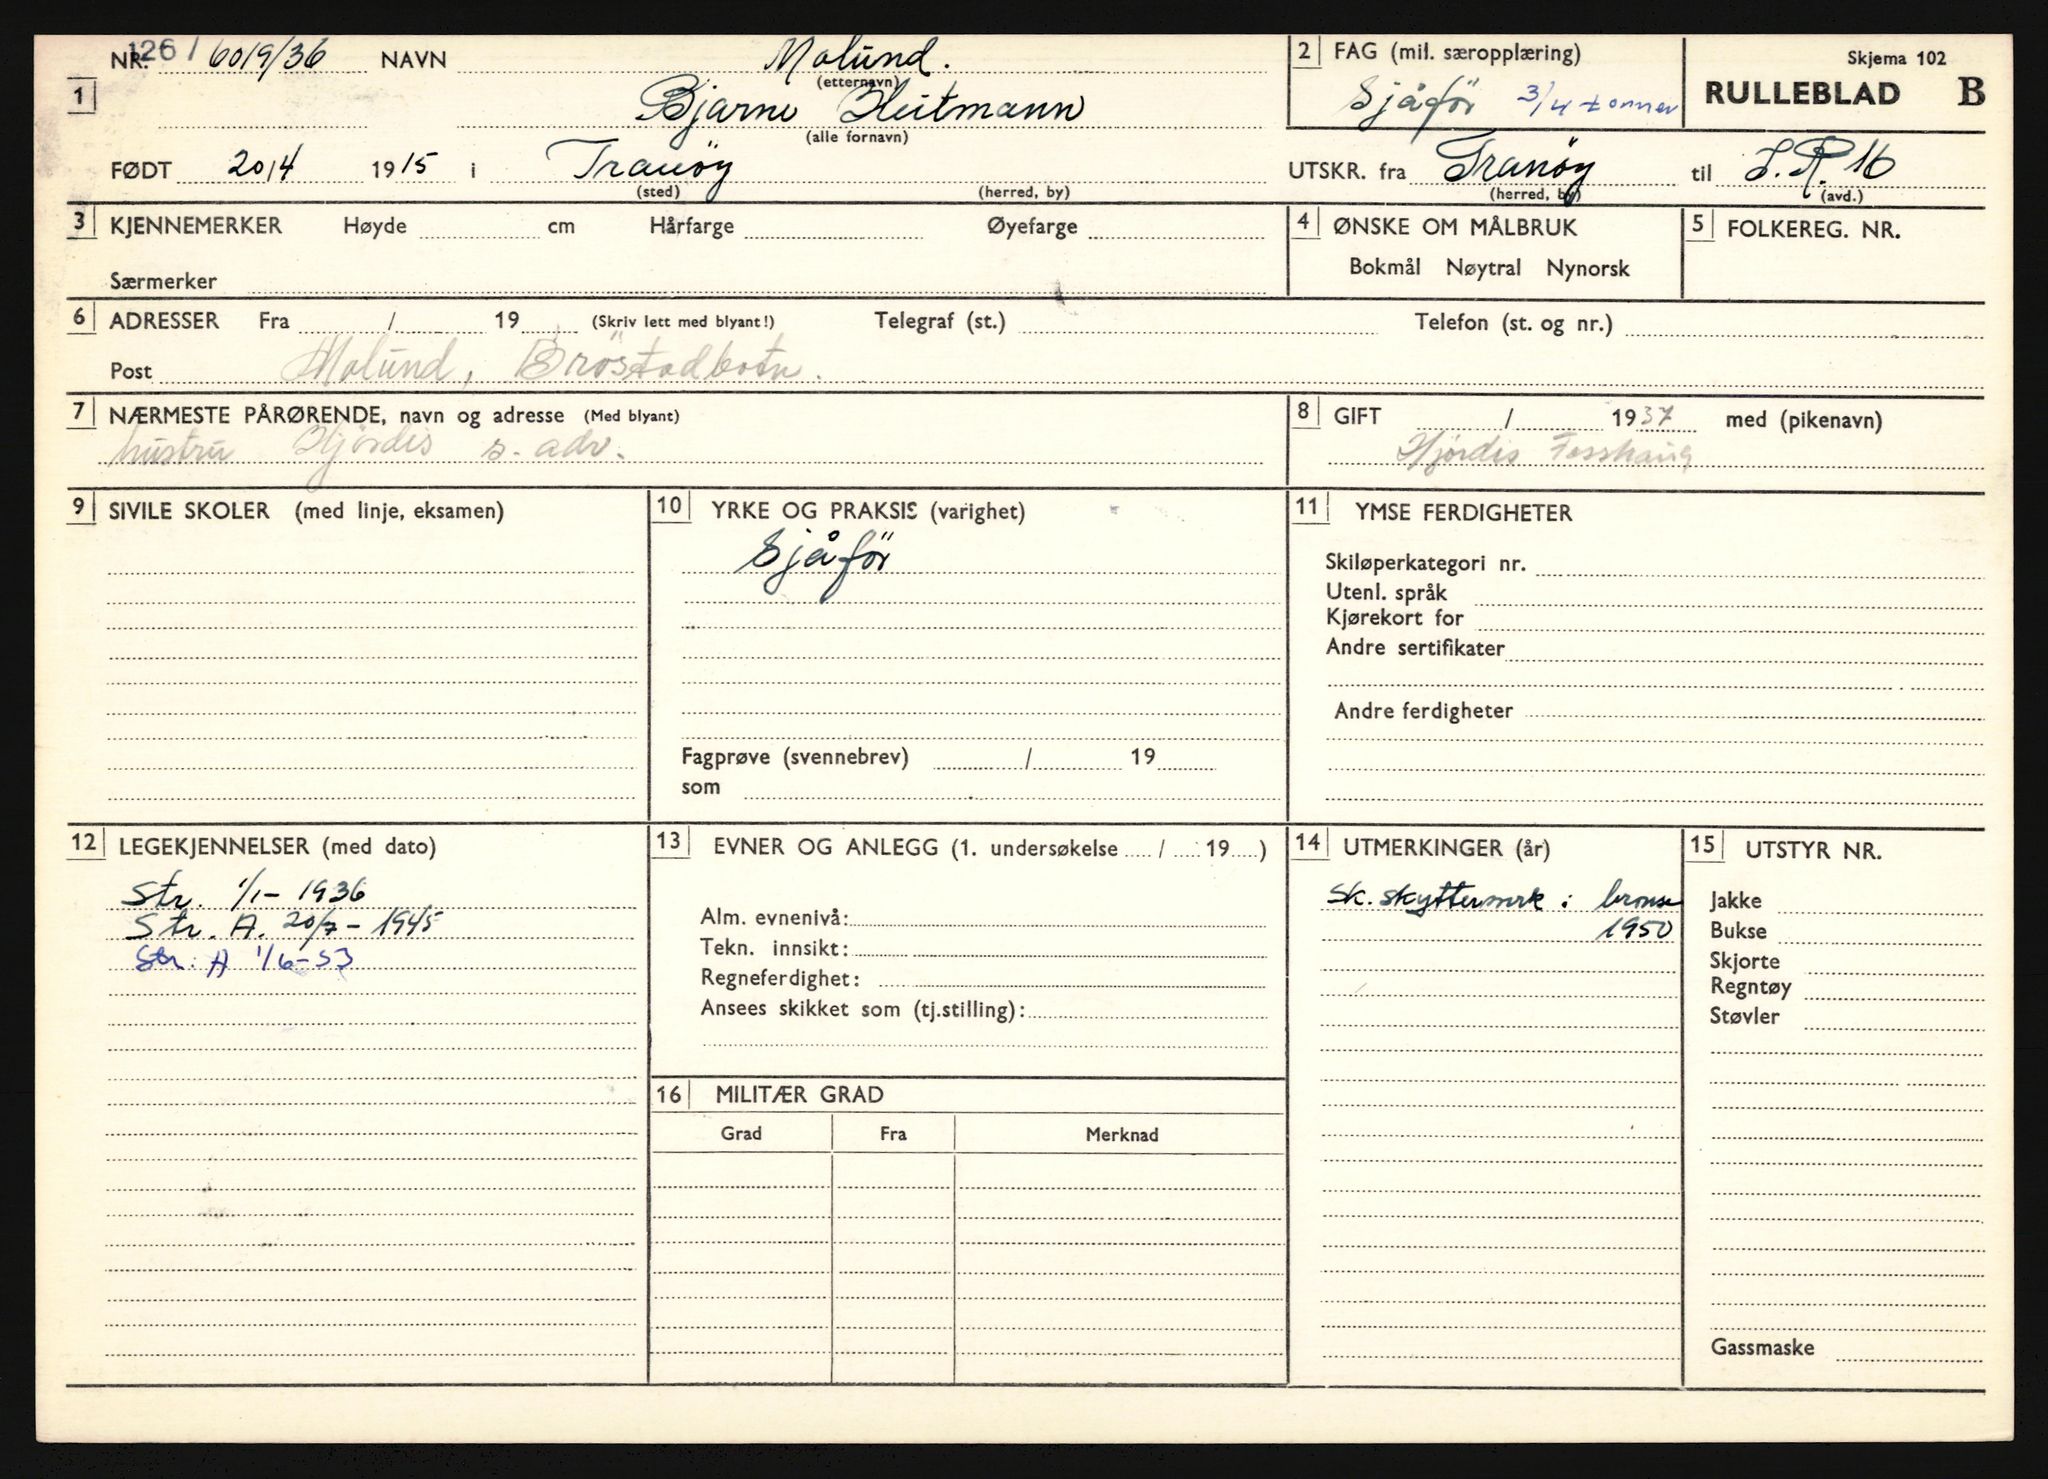 126/
NR. 6019/36 NAVN Molund.
(etternavn)
1 Bjarne Heitmann
(alle fornavn)
FØDT 20/4 1915 i Tranöy
(sted) (herred, by)
2 FAG (mil. særopplæring)
Sjåför 3/4 tonner
Skjema 102
RULLEBLAD B
UTSKR. fra Tranöy til I.R. 16
(herred, by) (avd.)
3 KJENNEMERKER Høyde cm Hårfarge Øyefarge
Særmerker
4 ØNSKE OM MÅLBRUK
Bokmål Nøytral Nynorsk
5 FOLKEREG. NR.
6 ADRESSER Fra / 19 (Skriv lett med blyant!) Telegraf (st.) Telefon (st. og nr.)
Post Molund, Bröstadbotn.
7 NÆRMESTE PÅRØRENDE, navn og adresse (Med blyant)
hustru Hjördis s. adr.
8 GIFT / 1937 med (pikenavn)
Hjördis
9 SIVILE SKOLER (med linje, eksamen)
10 YRKE OG PRAKSIS (varighet)
Sjåför
Fagprøve (svennebrev) / 19
som
11 YMSE FERDIGHETER
Skiløperkategori nr.
Utenl. språk
Kjørekort for
Andre sertifikater
Andre ferdigheter
12 LEGEKJENNELSER (med dato)
Str. 1/1- 1936
Str. A. 20/7 - 1945
Str. A 1/6-53
13 EVNER OG ANLEGG (1. undersøkelse / 19 )
Alm. evnenivå:
Tekn. innsikt:
Regneferdighet:
Ansees skikket som (tj.stilling):
16 MILITÆR GRAD
Grad Fra Merknad
14 UTMERKINGER (år)
Sk. skyttermerk i bronse
1950
15 UTSTYR NR.
Jakke
Bukse
Skjorte
Regntøy
Støvler
Gassmaske